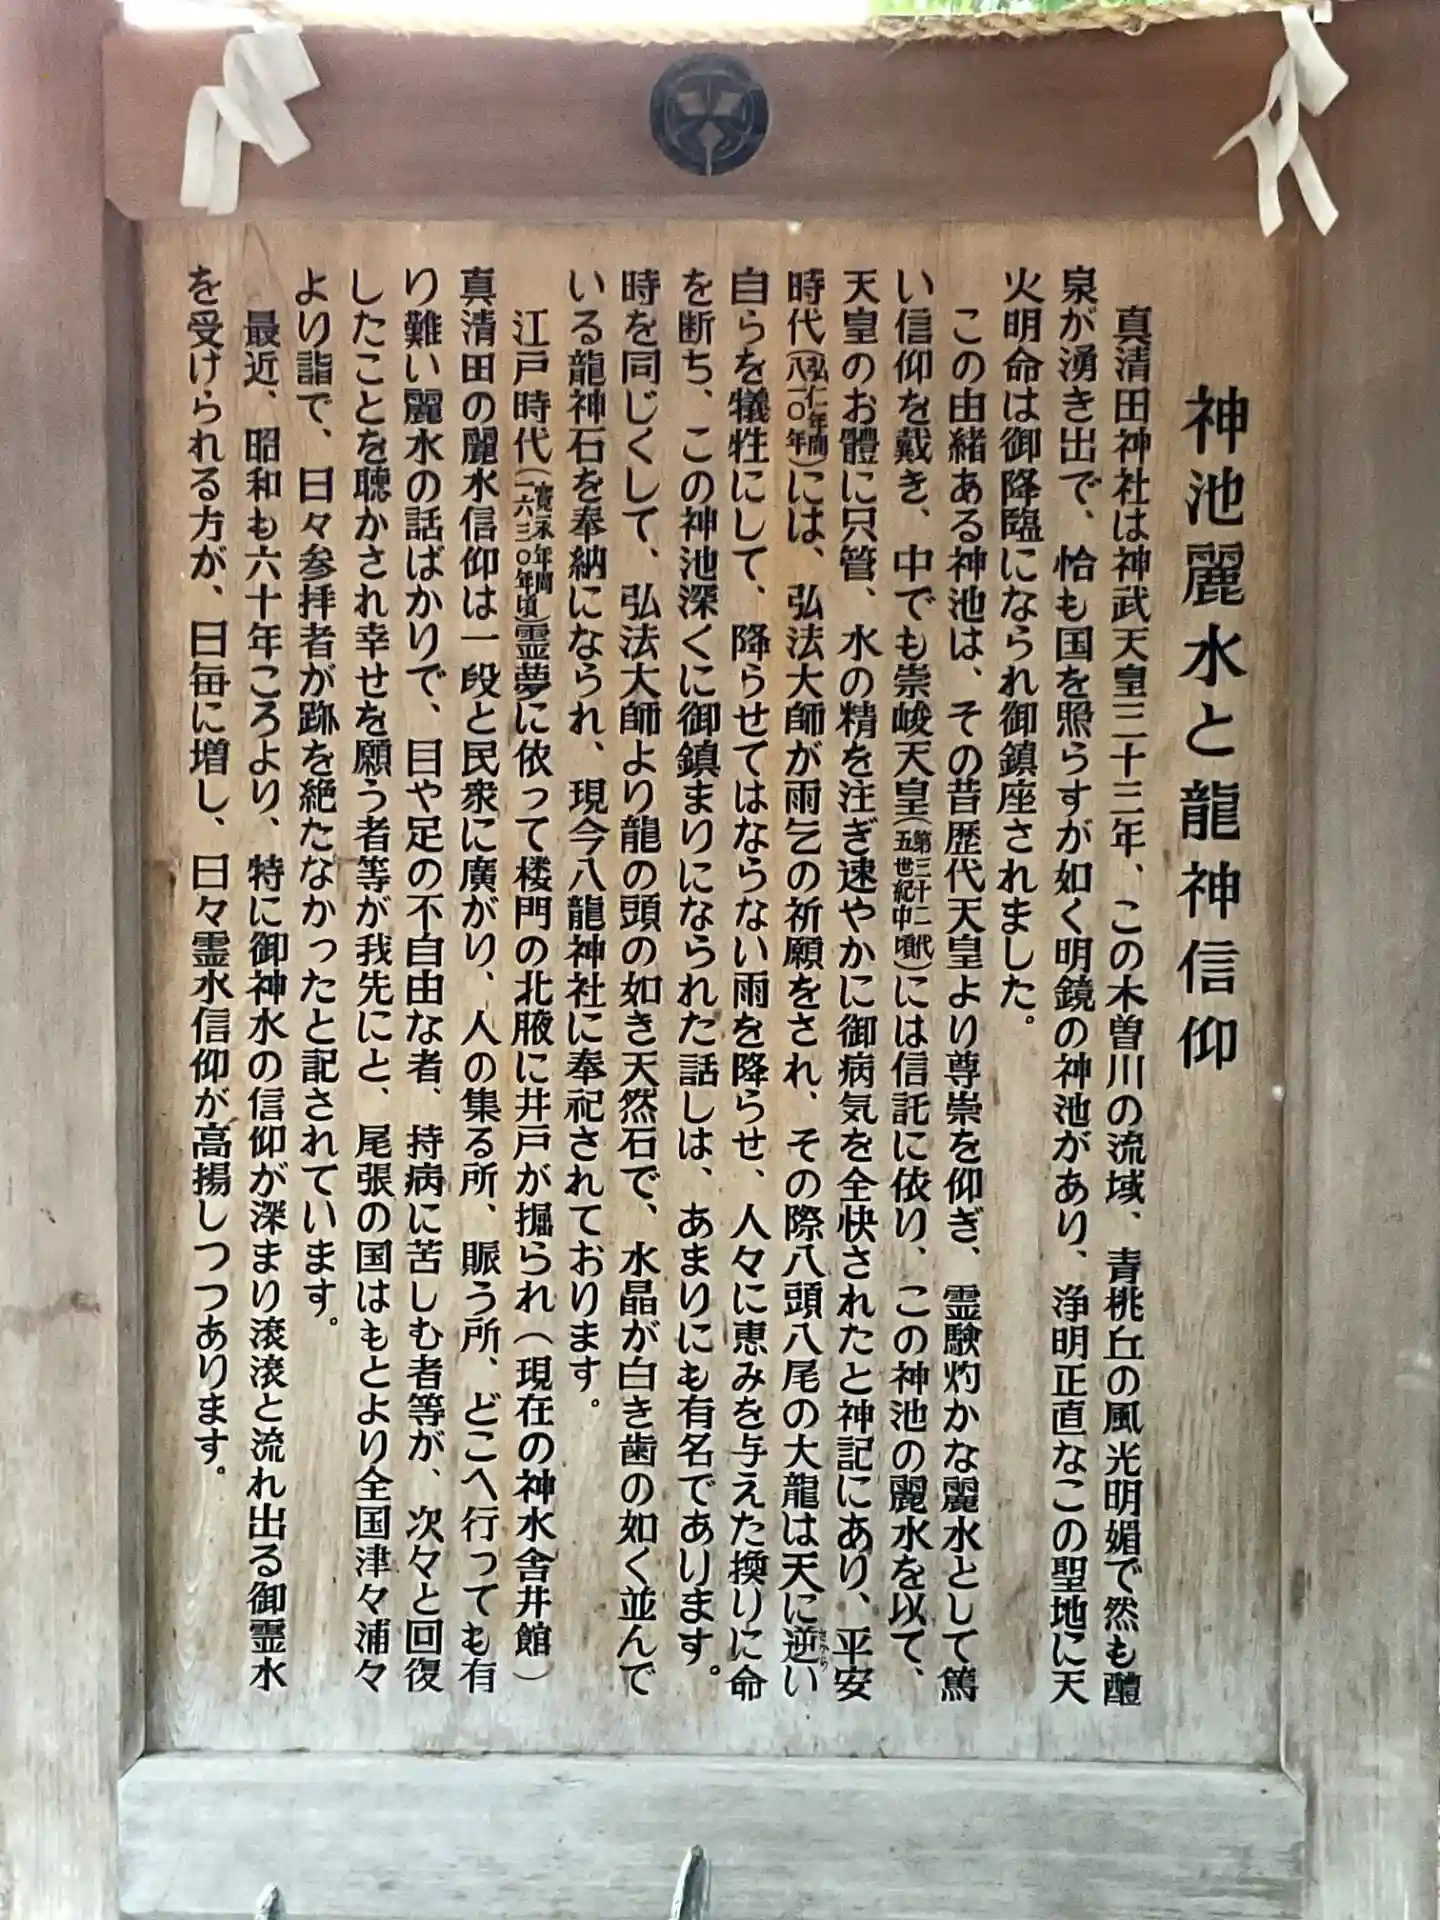 神池麗水と龍神信仰
真清田神社は神武天皇三十三年、この木曽川の流域、青桃丘の風光明媚で然も醴
泉が湧き出で、恰も国を照らすが如く明鏡の神池があり、浄明正直なこの聖地に天
火明命は御降臨になられ御鎮座されました。
この由緒ある神池は、その昔歴代天皇より尊崇を仰ぎ、霊験灼かな麗水として篤
い信仰を戴き、中でも崇峻天皇(第三十二代 五世紀中頃)には信託に依り、この神池の麗水を以て、
天皇のお體に只管、水の精を注ぎ速やかに御病気を全快されたと神記にあり、平安
時代(弘仁年間 八一〇年)には、弘法大師が雨乞の祈願をされ、その際八頭八尾の大龍は天に逆い
さから
自らを犠牲にして、降らせてはならない雨を降らせ、人々に恵みを与えた換りに命
を断ち、この神池深くに御鎮まりになられた話しは、あまりにも有名であります。
時を同じくして、弘法大師より龍の頭の如き天然石で、水晶が白き歯の如く並んで
いる龍神石を奉納になられ、現今八龍神社に奉祀されております。
江戸時代(寛永年間 一六三〇年頃)霊夢に依って楼門の北腋に井戸が掘られ(現在の神水舎井館)
真清田の麗水信仰は一段と民衆に廣がり、人の集る所、賑う所、どこへ行っても有
り難い麗水の話ばかりで、目や足の不自由な者、持病に苦しむ者等が、次々と回復
したことを聴かされ幸せを願う者等が我先にと、尾張の国はもとより全国津々浦々
より詣で、日々参拝者が跡を絶たなかったと記されています。
最近、昭和も六十年ころより、特に御神水の信仰が深まり滾滾と流れ出る御霊水
を受けられる方が、日毎に増し、日々霊水信仰が高揚しつつあります。